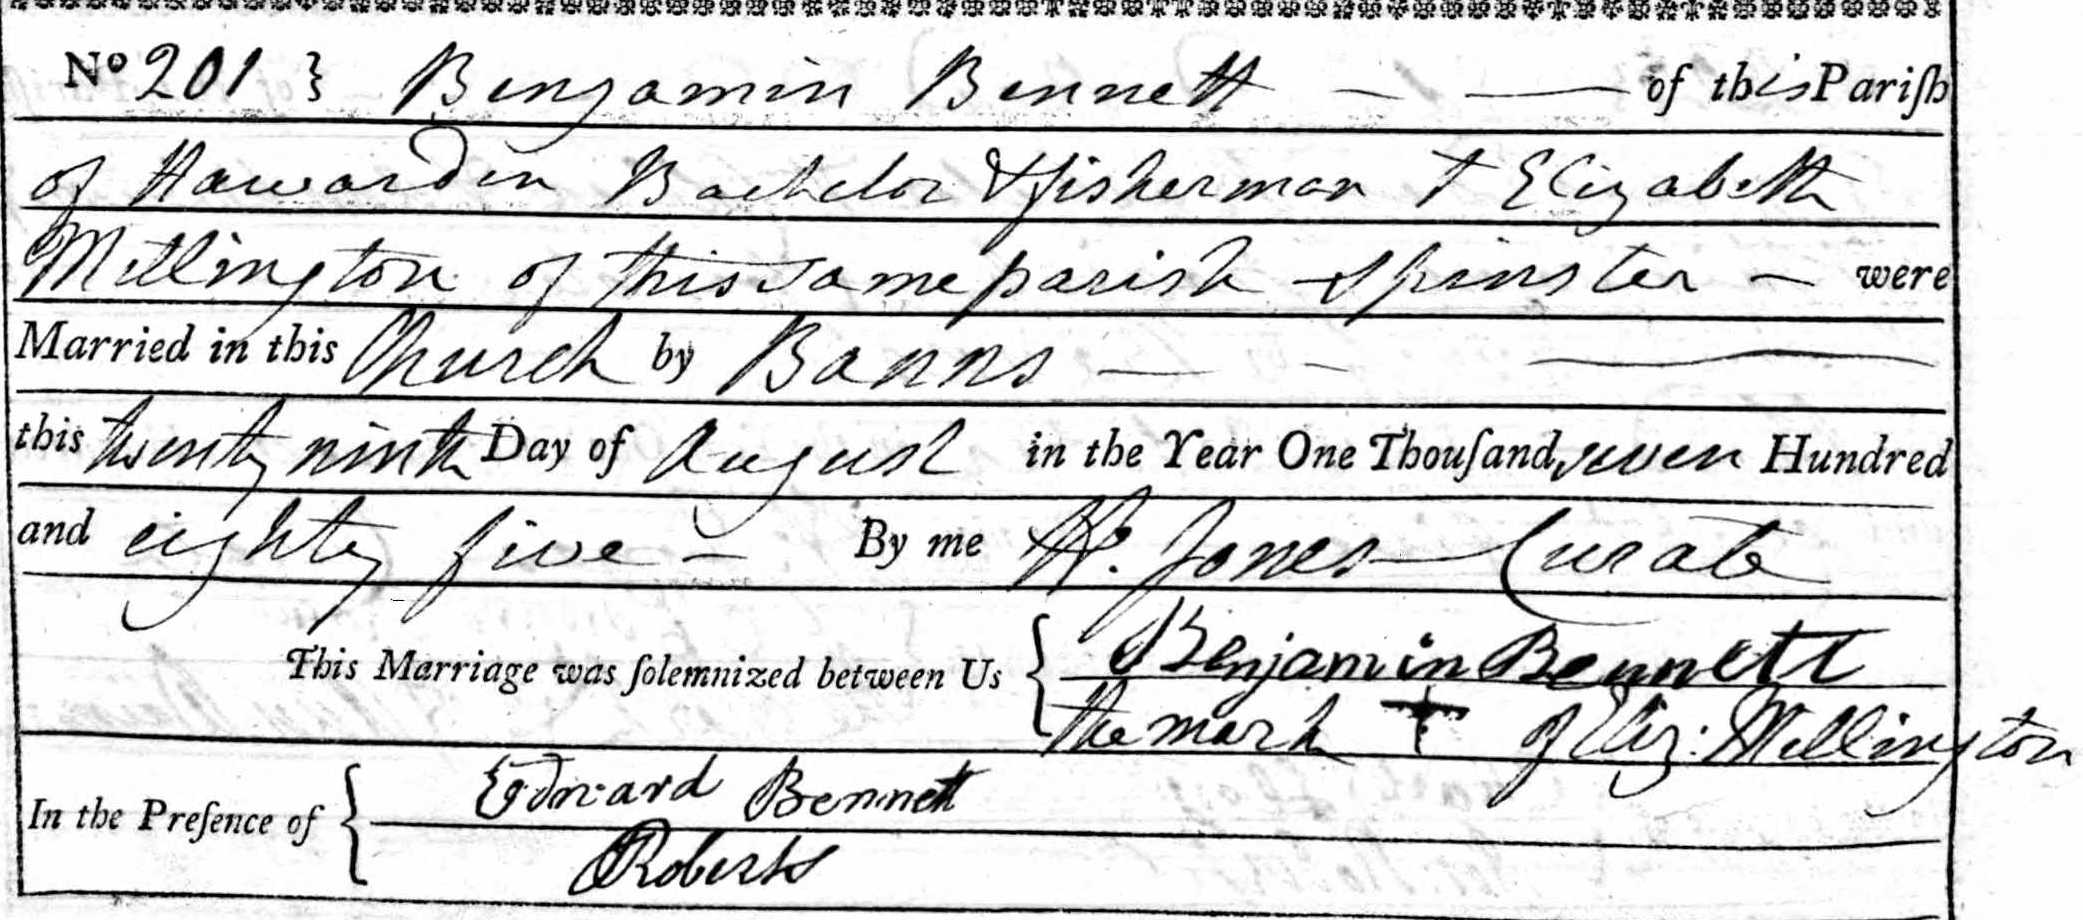 No 201 } Benjamin Bennett — — of this Pariſh
of Hawarden Bachelor & fisherman & Elizabeth
Millington of this same parish Spinster — were
Married in this Church by Banns — - —
this twenty ninth Day of August in the Year One Thouſand seven Hundred
and eighty five — By me W. Jones — Curate
This Marriage was ſolemnized between Us { Benjamin Bennett
the mark + of Eliz: Millington
In the Preſence of { Edward Bennett
Roberts